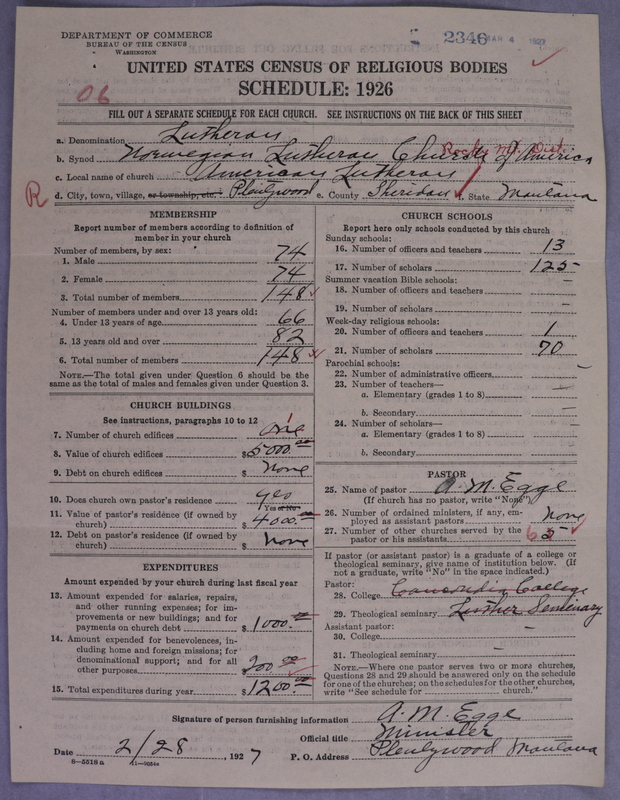 DEPARTMENT OF COMMERCE
BUREAU OF THE CENSUS
WASHINGTON
2346 MAR 4 1927
UNITED STATES CENSUS OF RELIGIOUS BODIES
SCHEDULE: 1926
06
FILL OUT A SEPARATE SCHEDULE FOR EACH CHURCH. SEE INSTRUCTIONS ON THE BACK OF THIS SHEET
a. Denomination Lutheran
b. Synod Norwegian Lutheran Church of America
Rocky Mt. Dist.
c. Local name of church American Lutheran
R
d. City, town, village, or township, etc. Plentywood e. County Sheridan f. State Montana
MEMBERSHIP
Report number of members according to definition of
member in your church
Number of members, by sex:
1. Male 74
2. Female 74
3. Total number of members 148
Number of members under and over 13 years old:
4. Under 13 years of age 66
5. 13 years old and over 82
6. Total number of members 148
NOTE.—The total given under Question 6 should be the
same as the total of males and females given under Question 3.
CHURCH BUILDINGS
See instructions, paragraphs 10 to 12
7. Number of church edifices one 1
8. Value of church edifices $5000.00
9. Debt on church edifices $ None
10. Does church own pastor's residence yes
Yes or No
11. Value of pastor's residence (if owned by
church) $4000.00
12. Debt on pastor's residence (if owned by
church) $ None
EXPENDITURES
Amount expended by your church during last fiscal year
13. Amount expended for salaries, repairs,
and other running expenses; for im-
provements or new buildings; and for
payments on church debt $1000.00
14. Amount expended for benevolences, in-
cluding home and foreign missions; for
denominational support; and for all
other purposes 200.00
15. Total expenditures during year $1200.00
CHURCH SCHOOLS
Report here only schools conducted by this church
Sunday schools:
16. Number of officers and teachers 13
17. Number of scholars 125
Summer vacation Bible schools:
18. Number of officers and teachers —
19. Number of scholars —
Week-day religious schools:
20. Number of officers and teachers 1
21. Number of scholars 70
Parochial schools:
22. Number of administrative officers —
23. Number of teachers—
a. Elementary (grades 1 to 8) —
b. Secondary —
24. Number of scholars—
a. Elementary (grades 1 to 8) —
b. Secondary —
PASTOR
25. Name of pastor A. M. Egge
(If church has no pastor, write "None")
26. Number of ordained ministers, if any, em-
ployed as assistant pastors None
27. Number of other churches served by the
pastor or his assistants 6 5
If pastor (or assistant pastor) is a graduate of a college or
theological seminary, give name of institution below. (If
not a graduate, write "No" in the space indicated.)
Pastor:
28. College Concordia College
29. Theological seminary Luther Seminary
Assistant pastor:
30. College —
31. Theological seminary —
NOTE.—Where one pastor serves two or more churches,
Questions 28 and 29 should be answered only on the schedule
for one of the churches; on the schedules for the other churches,
write "See schedule for church."
Signature of person furnishing information A. M. Egge
Official title Minister
Date 2/28, 1927 P. O. Address Plentywood Montana
8—5518 a